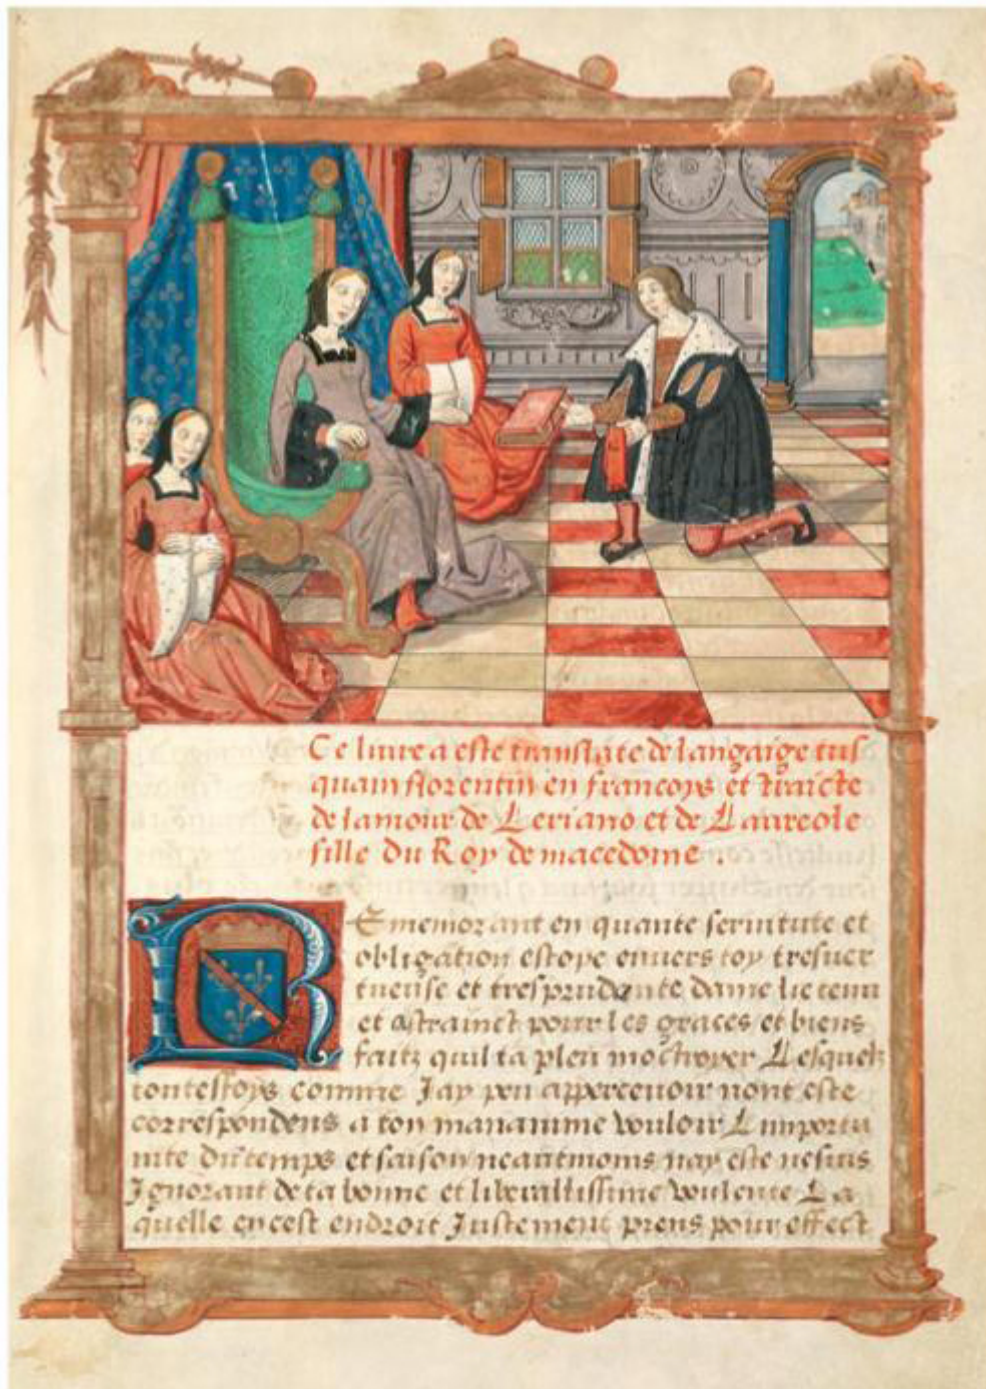 Ce liure a este translate de langaige tus
quam florentin en francoys et traicte
de lamour de Leriano et de Laureole
fille du Roy de macedome .
REmemorant en quante seruitute et
obligation estoye enuers toy tresuer
tueuse et tresprudente dame lie tenu
et astrainct pour les graces et biens
faitz quil ta pleu moctroyer Lesquelz
toutesfoys comme Jay peu appercevoir nont este
correspondens a ton manamme vouloir Limportu
nite du temps et saison neantmoins nay este ne suis
Jgnorant de ta bonne et liberallissime voulente La
quelle en cest endroit Justement prens pour effect